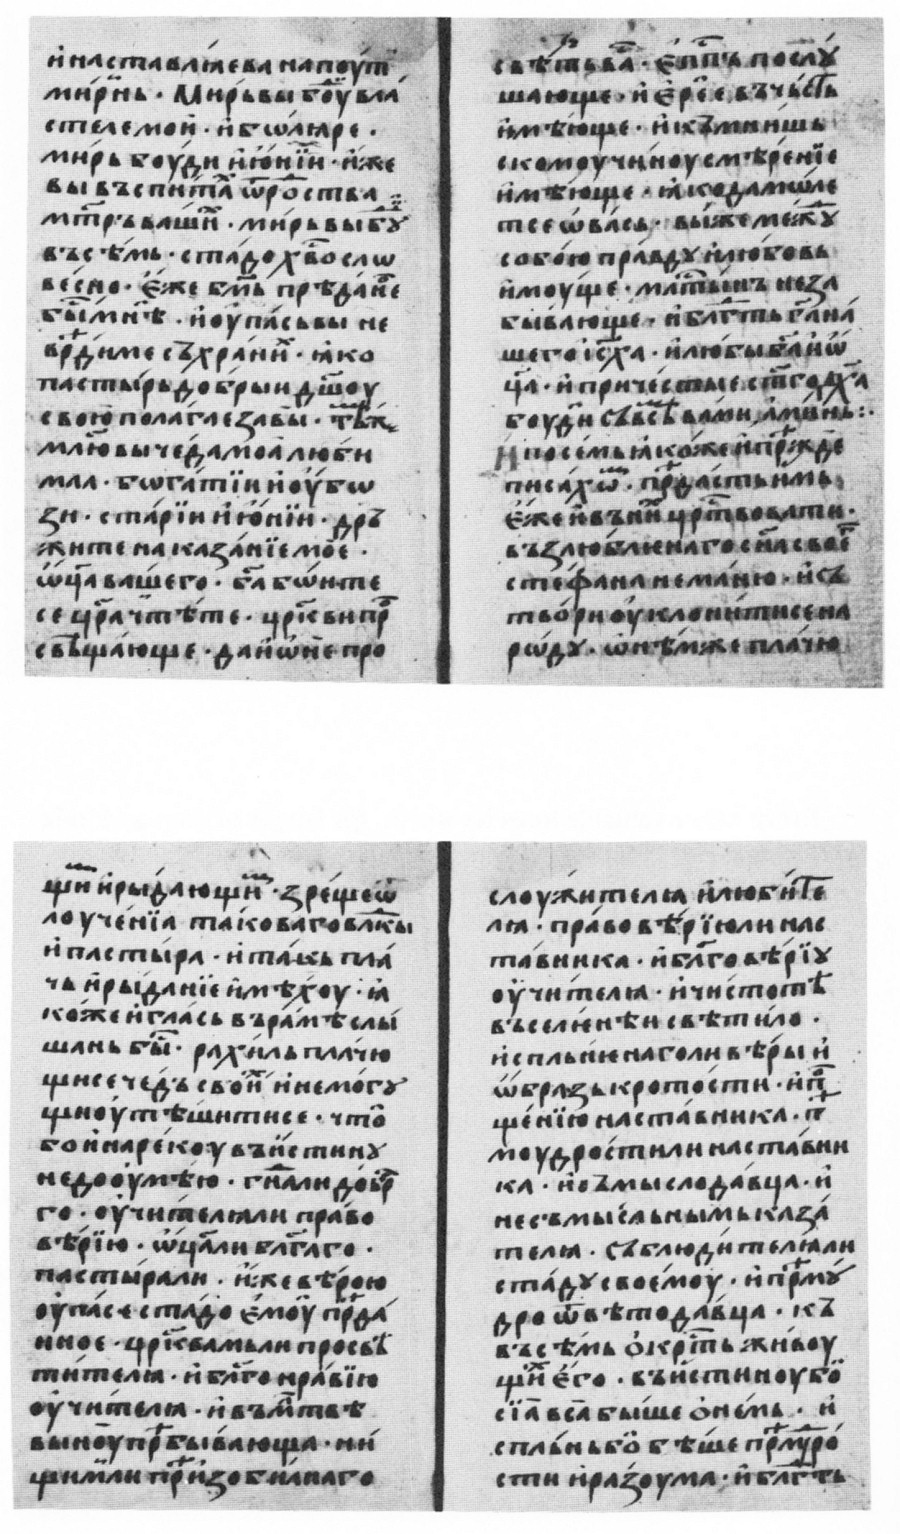 и наставлꙗѥ ва на поут
мирнь · Мирь вы боу вла
стеле мои · и бѡлꙗре ·
мирь боуди и юнїи · иже
вы въспитал ѿ роства
мтръ ваши · мирь вы боу
въсѣмь · стадо хво слѡ
весно · ѥже бмь прѣданѥ
бы мнѣ · и оупась вы не
врѣдиме съхрани · ꙗко
пастырь добрыи дшоу
свою полагаѥ за вы · тѣм
млю вы чеда моꙗ люби
маꙗ · богатїи и оубѡ
зи · старїи и юнїи · дръ
жите наказанїе моѥ ·
ѡца вашего · ба боите
се цра чтѣте · цркви пр
свѣщающе · да и ѡне про
свѣтѣ ва · ѥппъ послу
шающе · и ѥреѥ въ чьсть
имѣюще · и къ мнишь
скомоу чиноу смѣренїе
имѣюще · ꙗко да моле
тсе ѡ вась · вы же межу
собою правду и любовь
имоуще · млтынъ не за
бывающе · и блгть га на
шего іс ха · и любы ба и ѡ
ца · и причестїе стго дха
боуди съ всѣми вами аминь :·
И по семь ꙗкоже и прѣжде
писахѡ · прѣдасть имь
ѥже и въ ни цртвовати ·
възлюбленаго сна своѥ
стефана неманю · и съ
твори оуклонитисе на
родꙋ · ѡ нѥмже плачю
щи и рыдающи · зреще ѿ
лоученїꙗ таковаго влкы
и пастыра · и такь пла
чь и рыданїе имѣхоу · ꙗ
коже и глась въ рамѣ слы
шань бы · рахиль плачю
щисе чедь свои и немогꙋ
щи оутѣшитисе · что
бо и нарекоу въистинꙋ
недооумѣю · гна ли добр
го · оучителꙗ ли право
вѣрїю · ѡца ли блгаго ·
пастыра ли · иже вѣрою
оупасе стадо ѥмоу прѣда
нное · црквамь ли просвѣ
тителꙗ · и блгонравїю
оучителꙗ · и въ млтвѣ
вы иноу прѣбывающа · ни
щим ли прѣизобилнаго
слоужителꙗ и любите
лꙗ · правовѣрїю ли нас
тавника · и блговѣрїꙋ
оучителꙗ · и чистотѣ
въселенѣи свѣтило ·
исплънена го ли вѣры и
ѡбразь кротости · и п
щенїю наставника · п
моудрости ли настaвни
ка · и съмыслодавца · и
несъмысльнымь каза
телꙗ · съблюдителꙗ ли
стадꙋ своемоу · и прѣмꙋ
дро ѿвѣтодавца · къ
въсѣмь ѡкрть живоу
щи ѥго · въистиноу бо
сїа вса быше о немь · и
сплънь бо бѣше прѣмꙋро
сти и разоума · и блгть